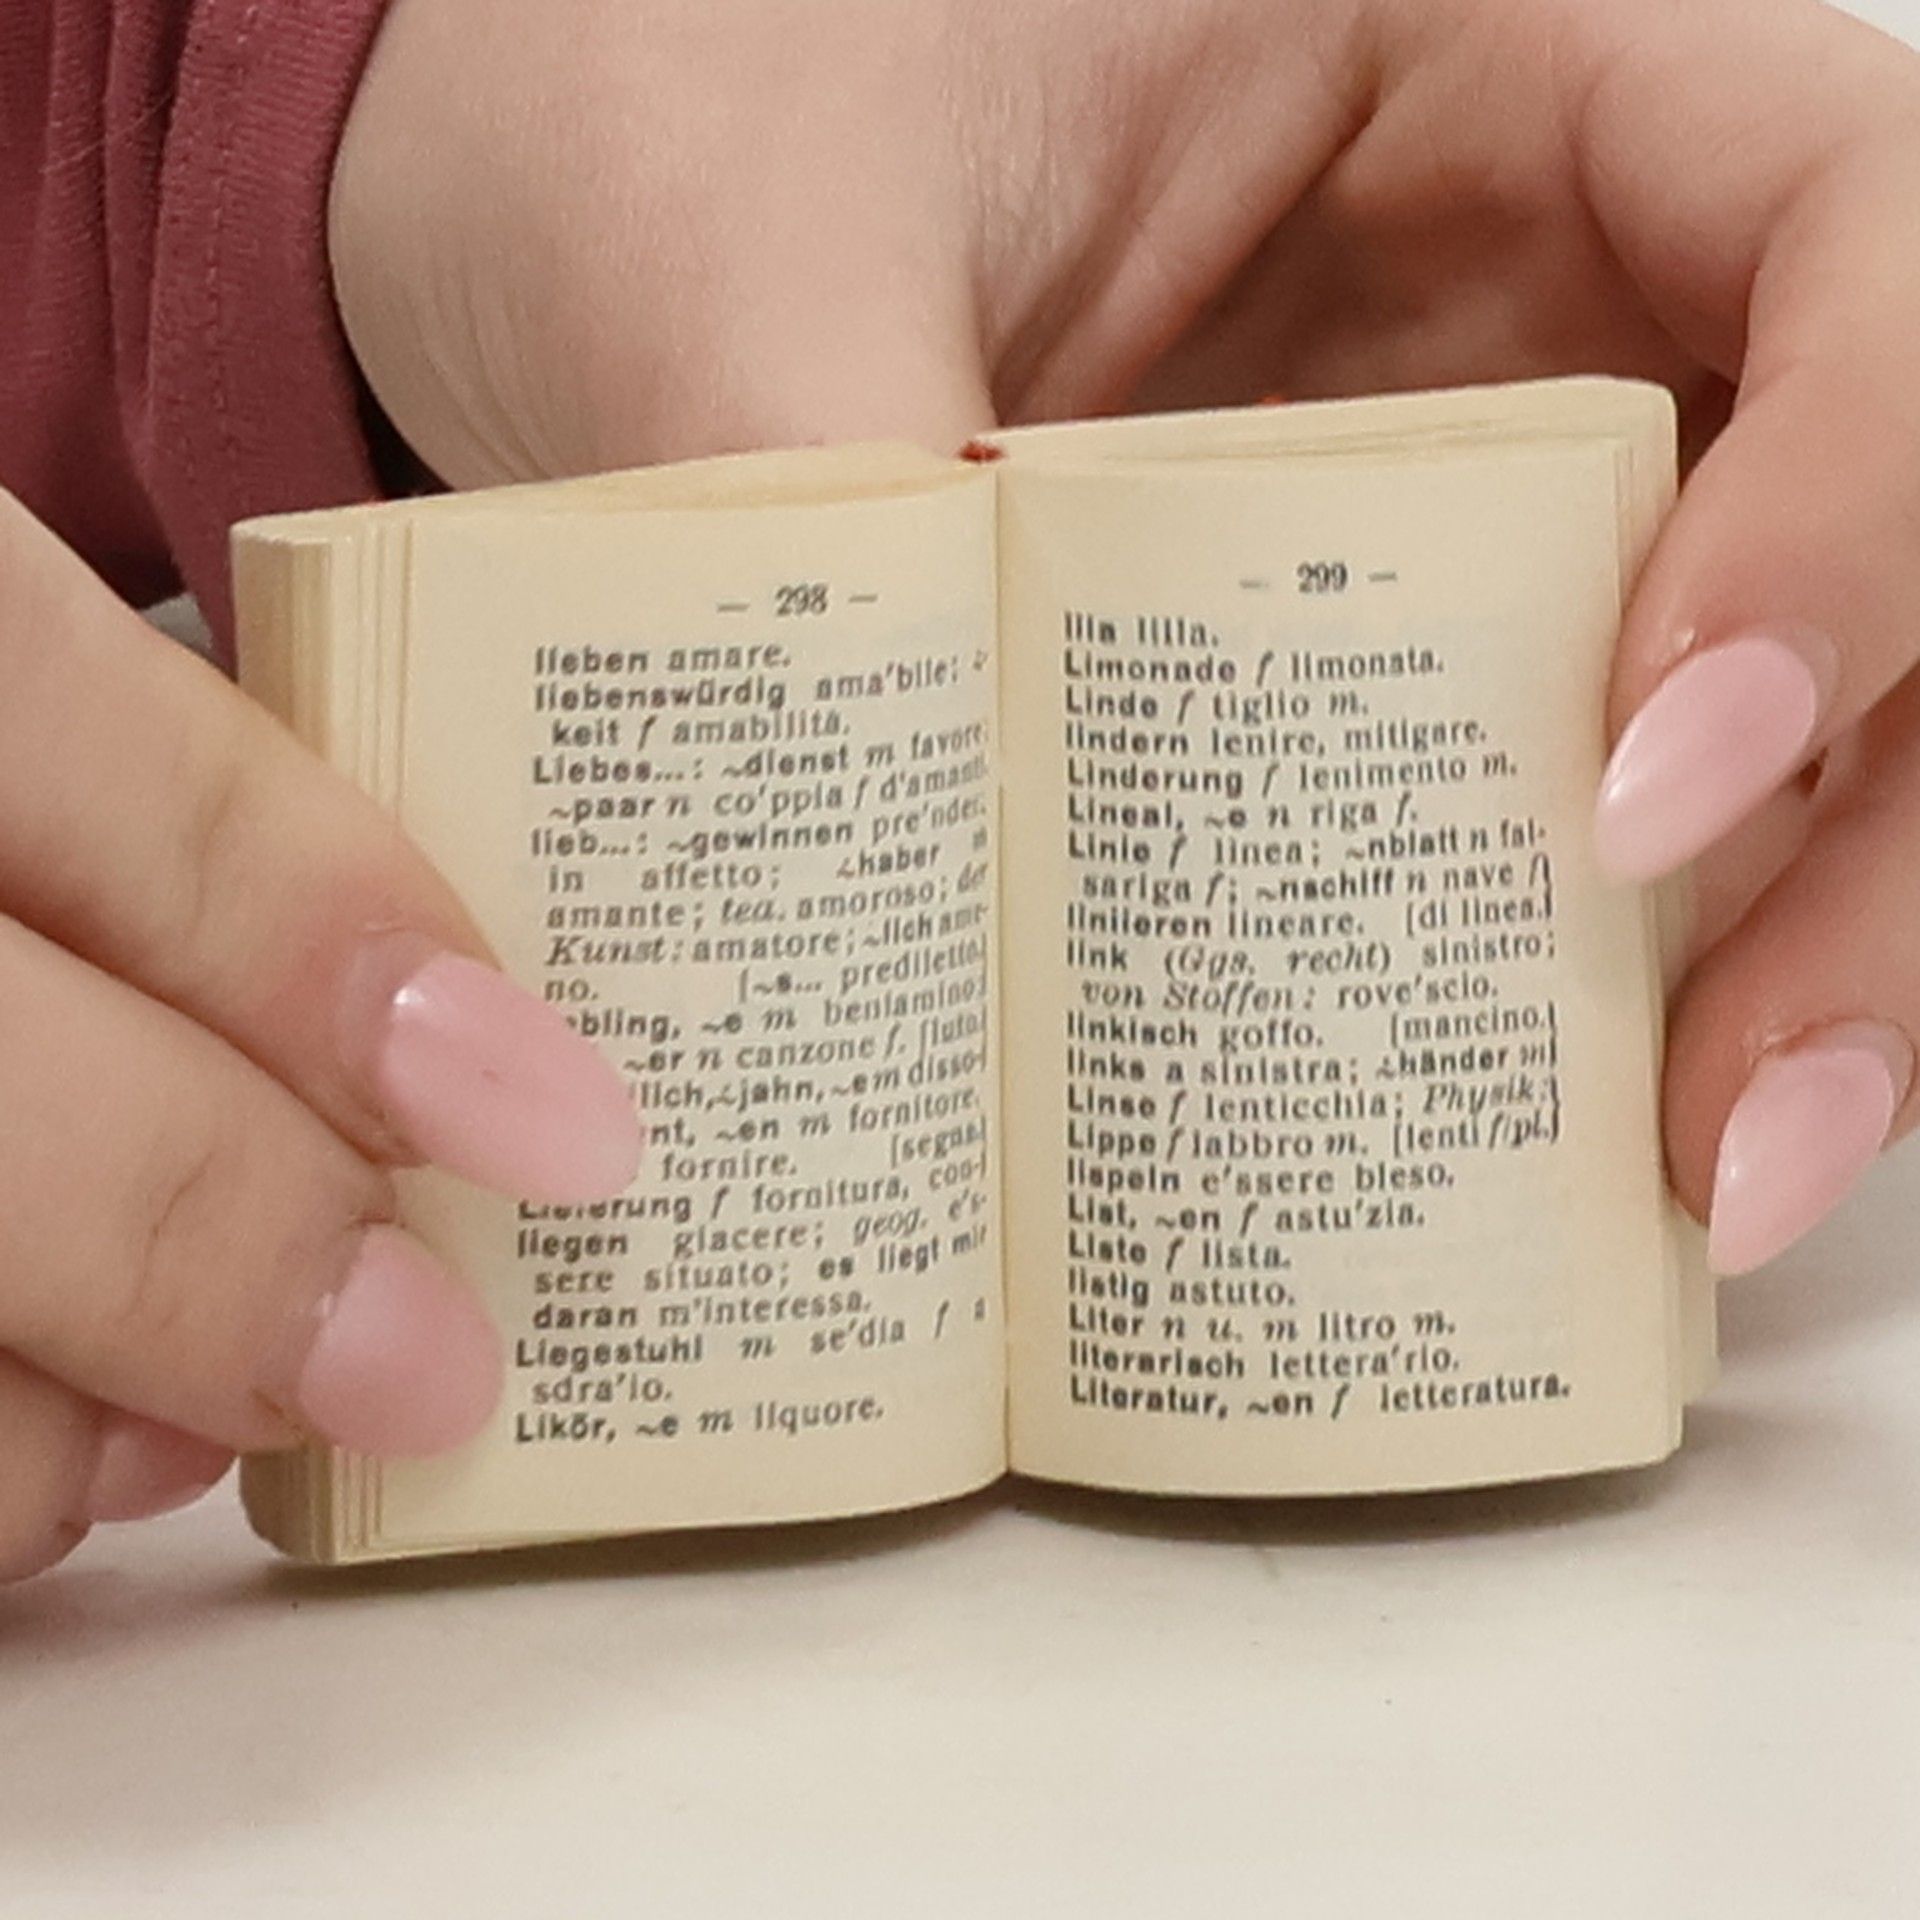 — 298 —
lieben amare.
liebenswürdig ama'bile;
keit f amabilità.
Liebes...: ~dienst m favore;
~paar n co'ppia f d'amanti.
lieb...: ~gewinnen pre'nder
in affetto; ⸗haber m
amante; tea. amoroso; der
Kunst: amatore; ~lich ame-
no. [~s... prediletto.]
bling, ~e m beniamino.
~er n canzone f. [luto.]
lich, ⸗jahn, ~e m disso-]
nt, ~en m fornitore.
fornire. [segna.]
Lieferung f fornitura, con-]
liegen giacere; geog. e's-
sere situato; es liegt mir
daran m'interessa.
Liegestuhl m se'dia f a
sdra'io.
Likör, ~e m liquore.
— 299 —
lila lilla.
Limonade f limonata.
Linde f tiglio m.
lindern lenire, mitigare.
Linderung f lenimento m.
Lineal, ~e n riga f.
Linie f linea; ~nblatt n fal-
sariga f; ~nschiff n nave f]
liniieren lineare. [di linea.]
link (Ggs. recht) sinistro;
von Stoffen: rove'scio.
linkisch goffo. [mancino.]
links a sinistra; ⸗händer m]
Linse f lenticchia; Physik:]
Lippe f labbro m. [lenti f/pl.]
lispeln e'ssere bleso.
List, ~en f astu'zia.
Liste f lista.
listig astuto.
Liter n u. m litro m.
literarisch lettera'rio.
Literatur, ~en f letteratura.